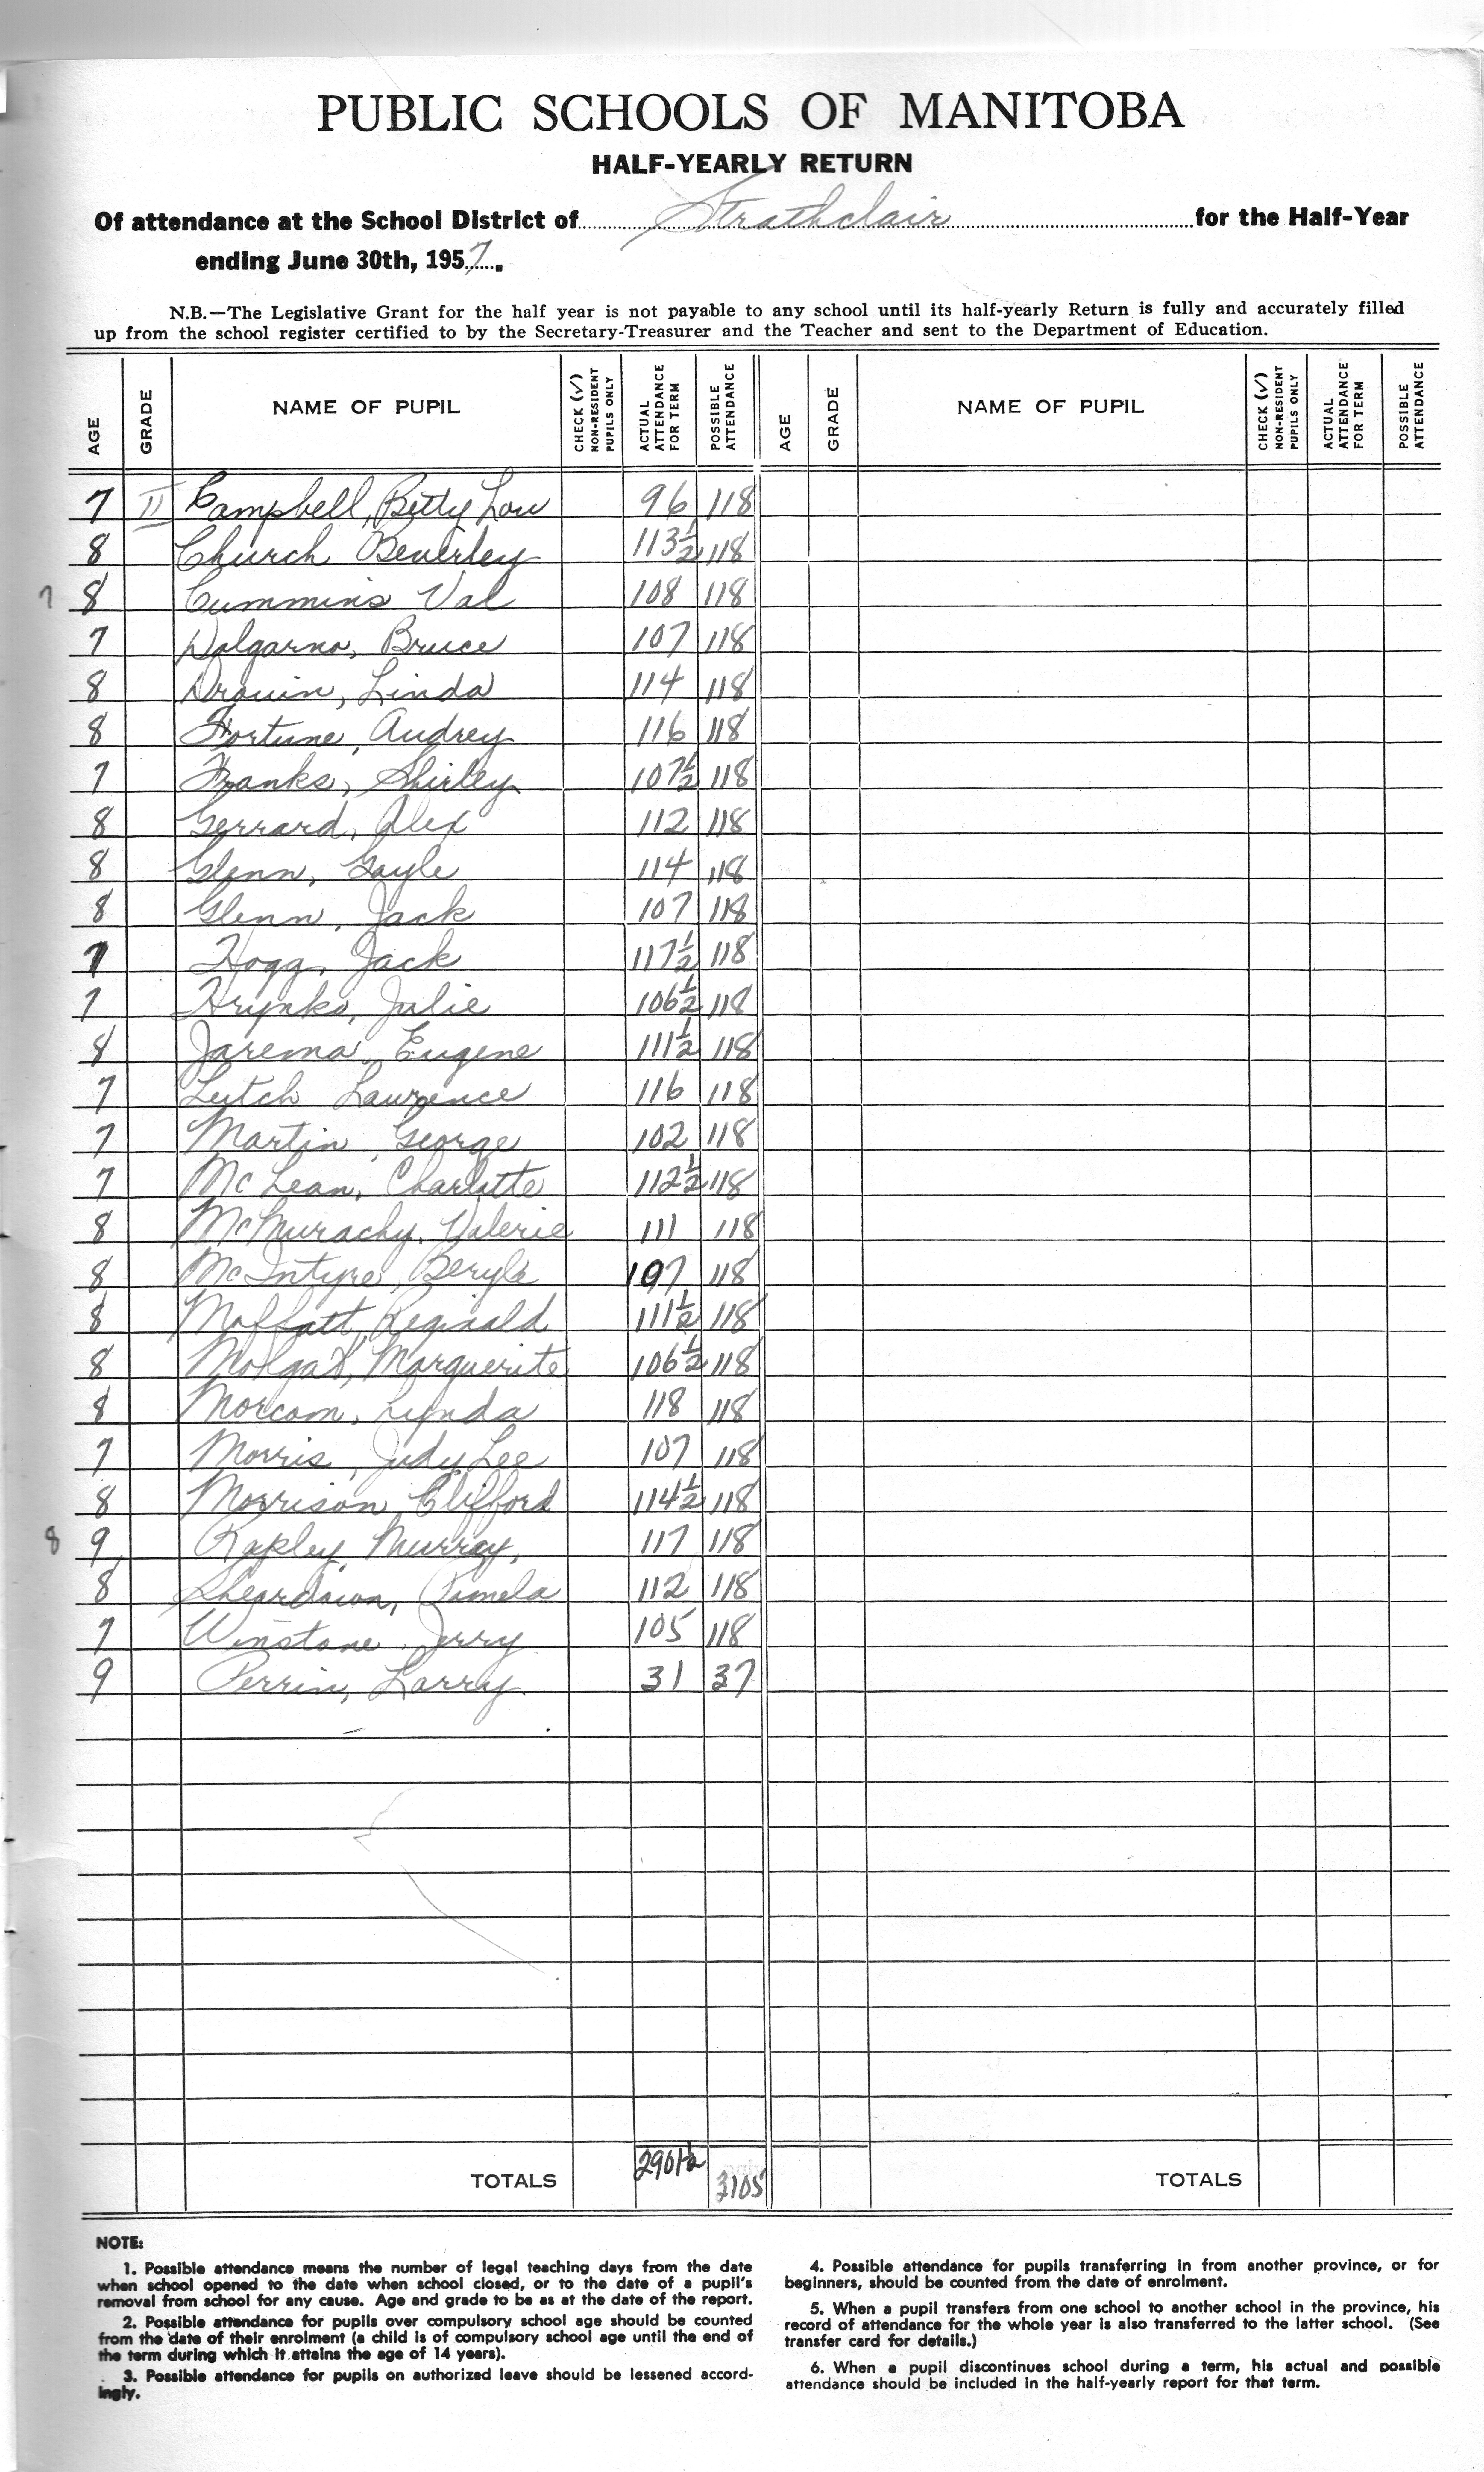 PUBLIC SCHOOLS OF MANITOBA
HALF-YEARLY RETURN
Of attendance at the School District of Strathclair for the Half-Year
ending June 30th, 1957.
N.B.—The Legislative Grant for the half year is not payable to any school until its half-yearly Return is fully and accurately filled
up from the school register certified to by the Secretary-Treasurer and the Teacher and sent to the Department of Education.
AGE GRADE NAME OF PUPIL CHECK (✓) NON-RESIDENT PUPILS ONLY ACTUAL ATTENDANCE FOR TERM POSSIBLE ATTENDANCE AGE GRADE NAME OF PUPIL CHECK (✓) NON-RESIDENT PUPILS ONLY ACTUAL ATTENDANCE FOR TERM POSSIBLE ATTENDANCE
7 II Campbell, Betty Lou 96 118
8 Church Beverley 113½ 118
7 8 Cummins Val 108 118
7 Dalgarno, Bruce 107 118
8 Drouin, Linda 114 118
8 Fortune, Audrey 116 118
7 Franks, Shirley 107½ 118
8 Gerrard, Alex 112 118
8 Glenn, Gayle 114 118
8 Glenn, Jack 107 118
7 Hogg, Jack 117½ 118
7 Hrynko, Julie 106½ 118
8 Jarema, Eugene 111½ 118
7 Leitch Laurence 116 118
7 Martin, George 102 118
7 McLean, Charlotte 112½ 118
8 McMurachy, Valerie 111 118
8 McIntyre, Beryle 107 118
8 Moffatt, Reginald 111½ 118
8 Molgat, Marguerite 106½ 118
8 Morcom, Lynda 118 118
7 Morris, Judy Lee 107 118
8 Morrison Clifford 114½ 118
8 9 Rapley, Murray, 117 118
8 Sheardown, Pamela 112 118
7 Winstone Jerry 105 118
9 Perrin, Larry 31 37
TOTALS 2901½ 3105 TOTALS
NOTE:
1. Possible attendance means the number of legal teaching days from the date
when school opened to the date when school closed, or to the date of a pupil's
removal from school for any cause. Age and grade to be as at the date of the report.
2. Possible attendance for pupils over compulsory school age should be counted
from the date of their enrolment (a child is of compulsory school age until the end of
the term during which it attains the age of 14 years).
3. Possible attendance for pupils on authorized leave should be lessened accord-
ingly.
4. Possible attendance for pupils transferring in from another province, or for
beginners, should be counted from the date of enrolment.
5. When a pupil transfers from one school to another school in the province, his
record of attendance for the whole year is also transferred to the latter school. (See
transfer card for details.)
6. When a pupil discontinues school during a term, his actual and possible
attendance should be included in the half-yearly report for that term.